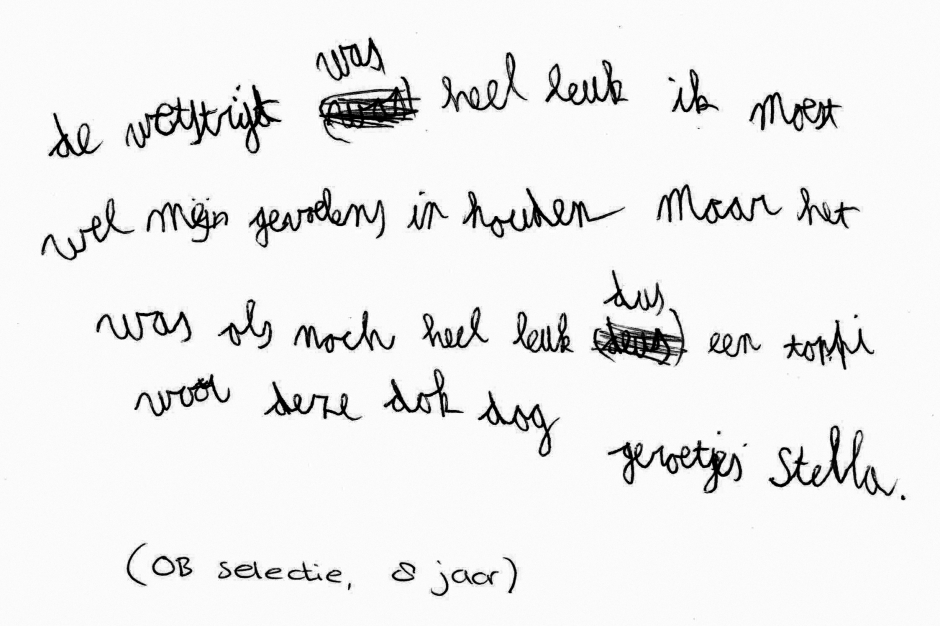 de wetstrijt was heel leuk ik moest
wel mijn gevoelens in houden maar het
was als noch heel leuk dus een toppi
voor deze dok dag
geroetjes Stella.
(OB selectie, 8 jaar)